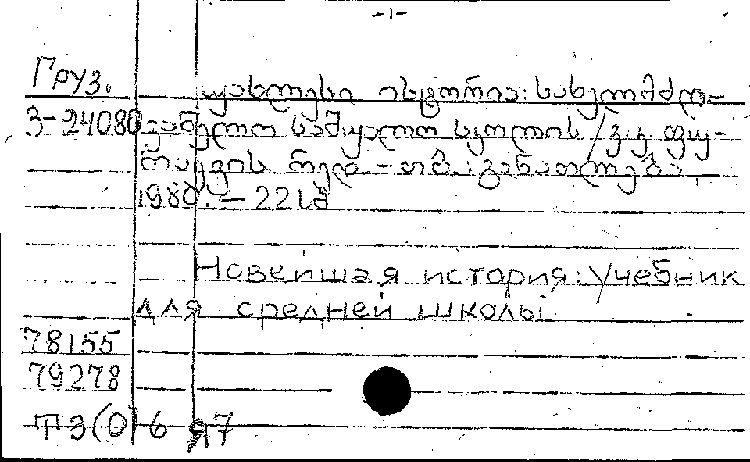 -1-
Груз. უახლესი ისტორია: სახელმძღ-
З-24080 ვანელო საშუალო სკოლის / ვ.კ. ფუ-
რაევის რედ. – თბ.: განათლება,
1980. – 221გ
Новейшая история: учебник
для средней школы
78155
79278
Т3(0)6 я7